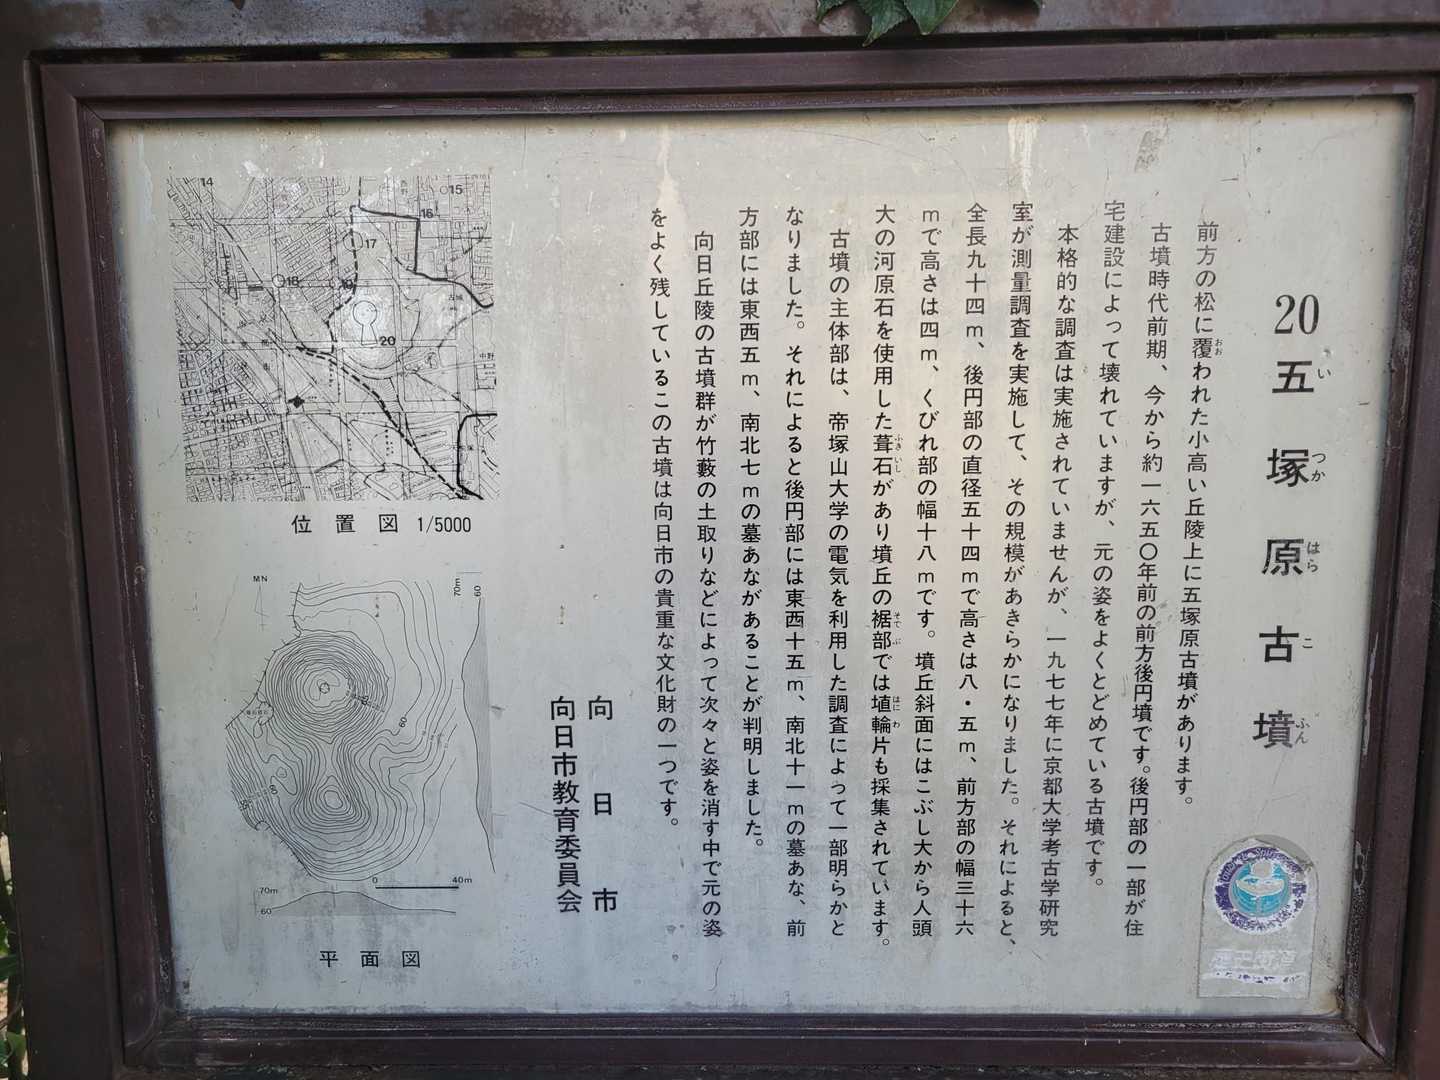 20 五塚原古墳
い つか はら こ ふん
前方の松に覆われた小高い丘陵上に五塚原古墳があります。
おお
古墳時代前期、今から約一六五〇年前の前方後円墳です。後円部の一部が住
宅建設によって壊れていますが、元の姿をよくとどめている古墳です。
本格的な調査は実施されていませんが、一九七七年に京都大学考古学研究
室が測量調査を実施して、その規模があきらかになりました。それによると、
全長九十四m、後円部の直径五十四mで高さは八・五m、前方部の幅三十六
mで高さは四m、くびれ部の幅十八mです。墳丘斜面にはこぶし大から人頭
大の河原石を使用した葺石があり墳丘の裾部では埴輪片も採集されています。
ふき いし そで ぶ はに わ
古墳の主体部は、帝塚山大学の電気を利用した調査によって一部明らかと
なりました。それによると後円部には東西十五m、南北十一mの墓あな、前
方部には東西五m、南北七mの墓あながあることが判明しました。
向日丘陵の古墳群が竹藪の土取りなどによって次々と姿を消す中で元の姿
をよく残しているこの古墳は向日市の貴重な文化財の一つです。
向日市
向日市教育委員会
14
15
16
17
18
19
20
位置図 1/5000
MN
70m
60
60
60
0 40m
70m
60
平面図